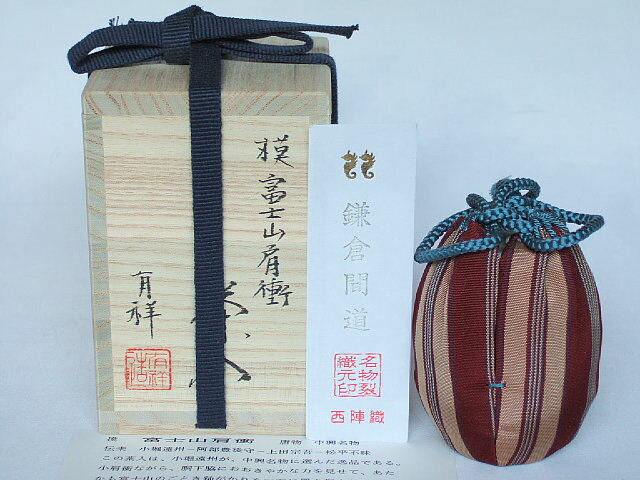 模 富士山肩衝
茶入
有祥
有祥
鎌倉間道
名物裂
織元印
西陣織
富士山肩衝 唐物 中興名物
伝来 小堀遠州－阿部豊後守－上田宗吾－松平不昧
この茶入は、小堀遠州が、中興名物に選んだ逸品である。
小肩衝ながら、胴下脇におおきやかな力を見せて、あた
かも富士山のごとき